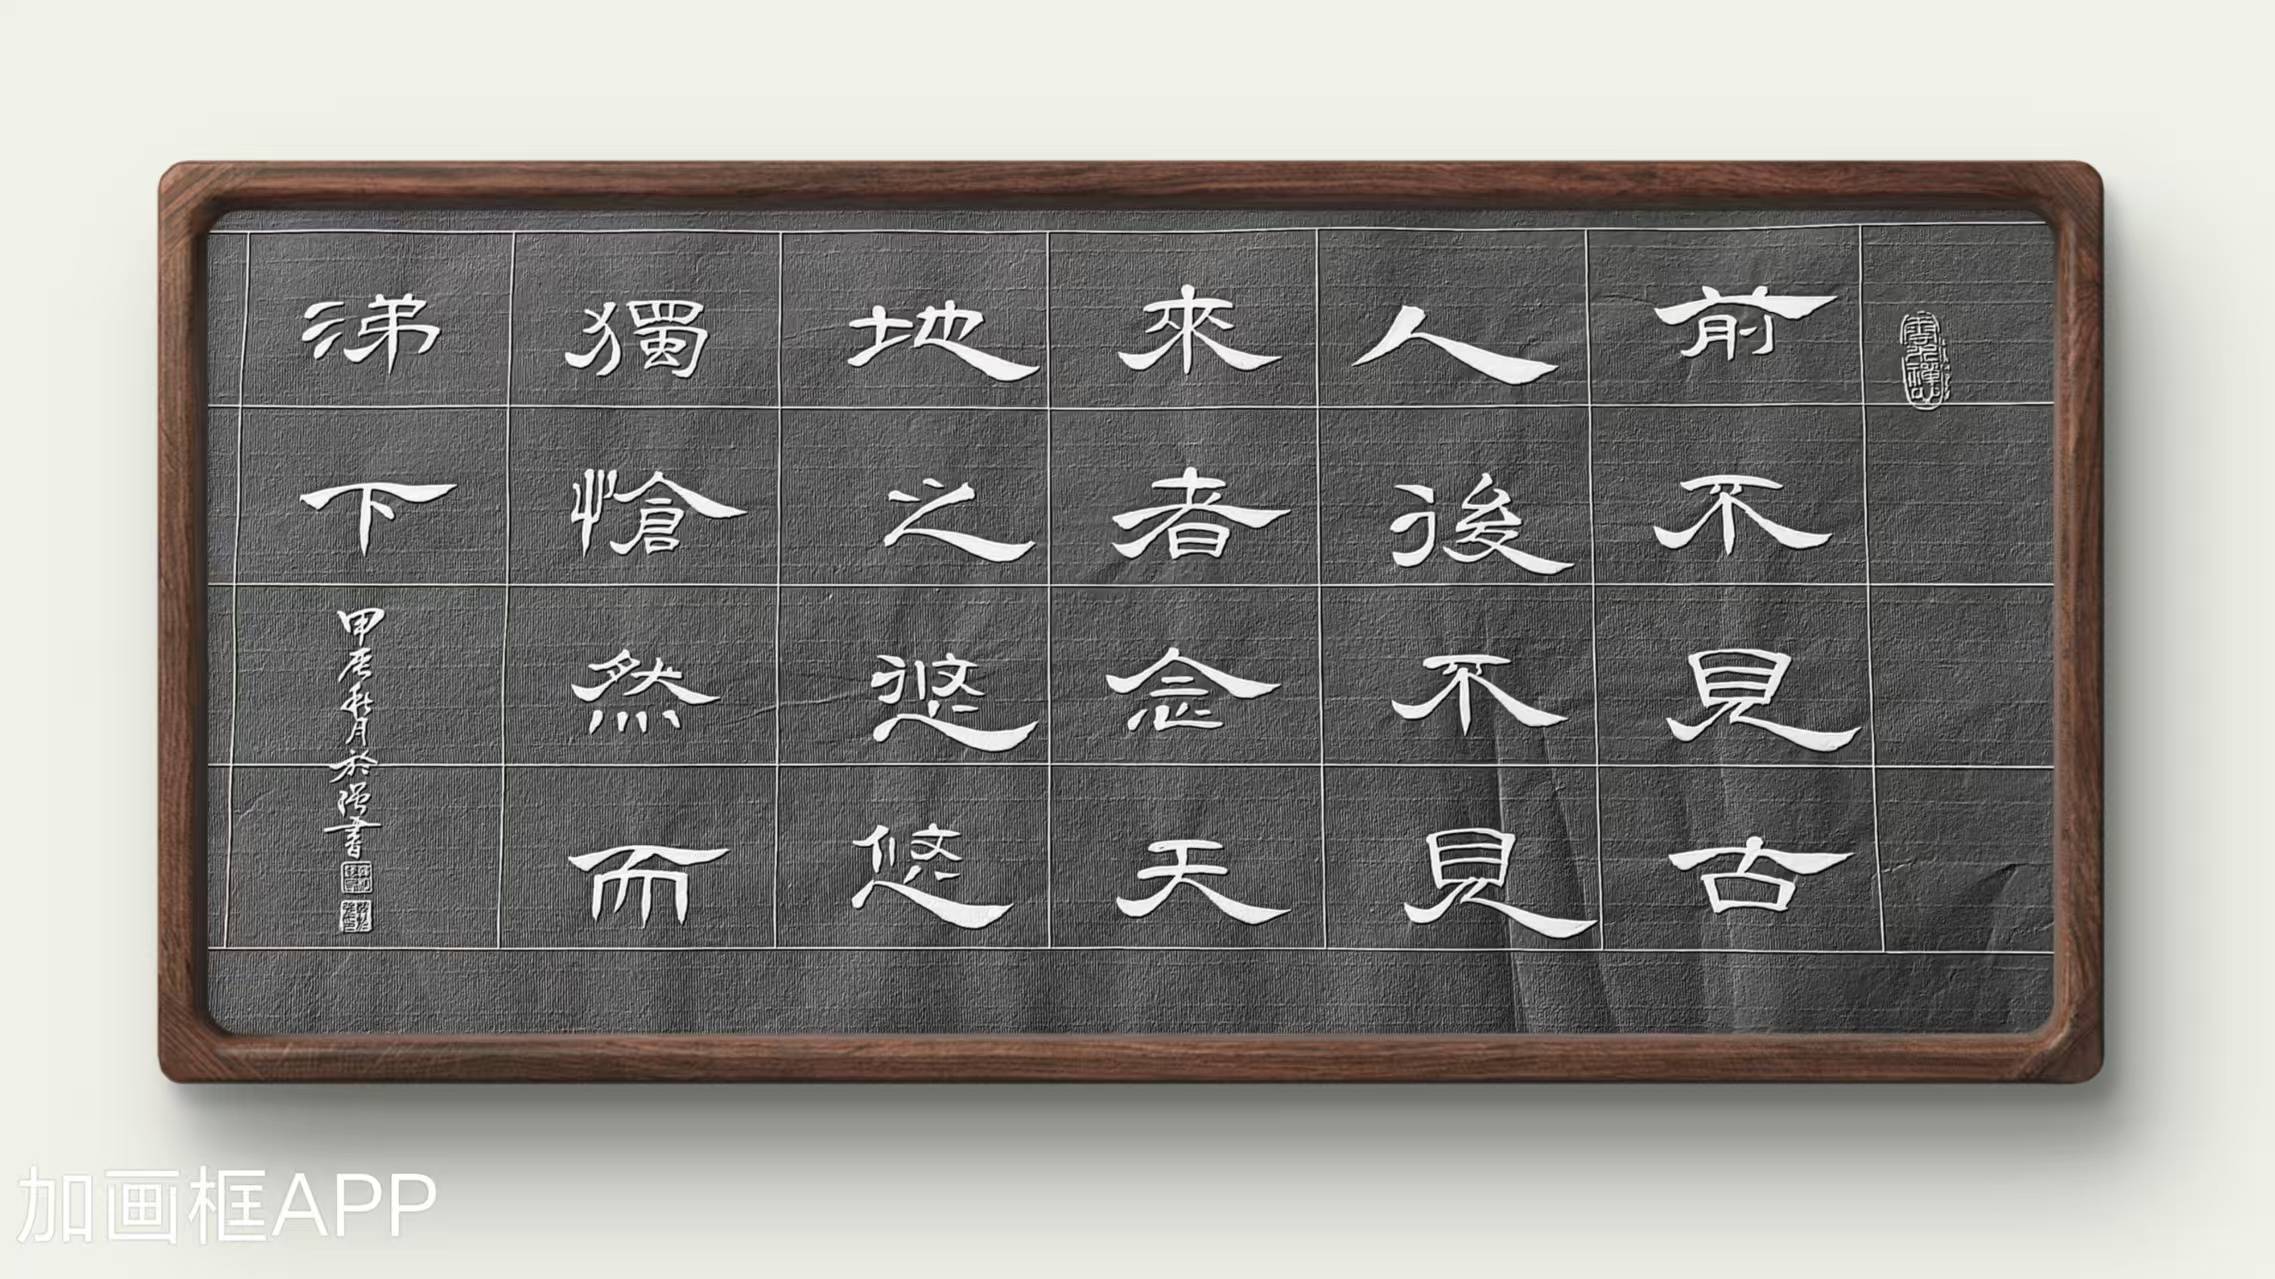 前不見古
人後不見
來者念天
地之悠悠
獨愴然而
涕下
甲辰秋月於書
加画框APP